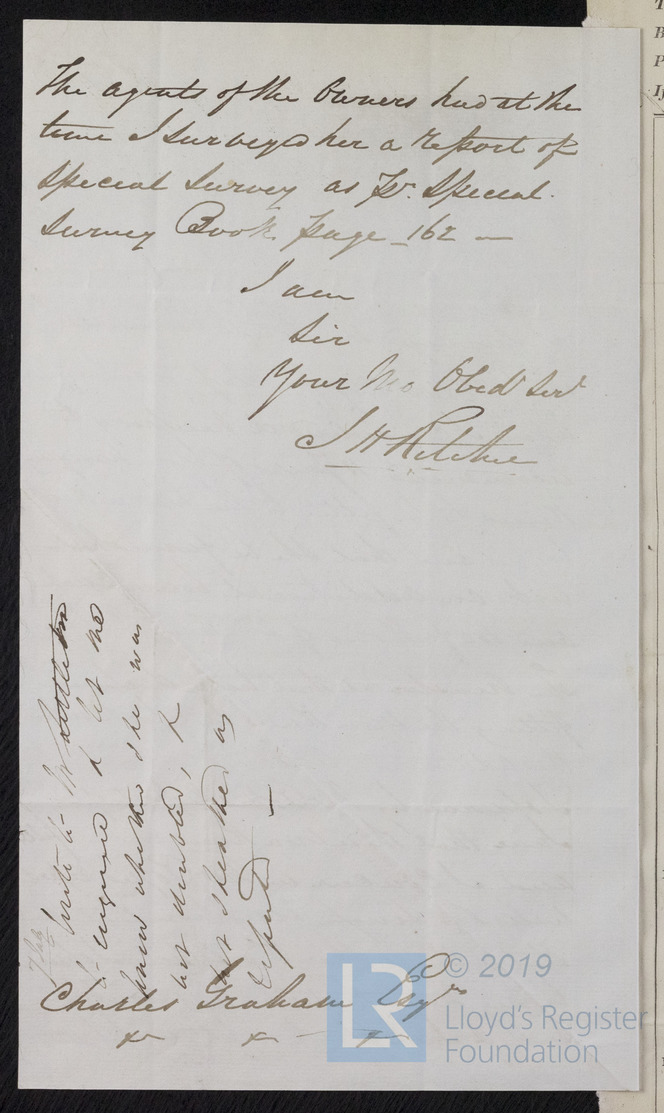 The Agents of the Owners had at the
time I Surveyed her a Report of
Special Survey as Pr. Special
Survey Book page 162 —
I am
Sir
Your Mo Obedt Servt
J H Ritchie
write to Mr
to enquire & let me
know whether she was
not doubled, &
not sheathed as
reported —
Charles Graham Esqre
© 2019
LR
Lloyd's Register
Foundation
T
B
P
If